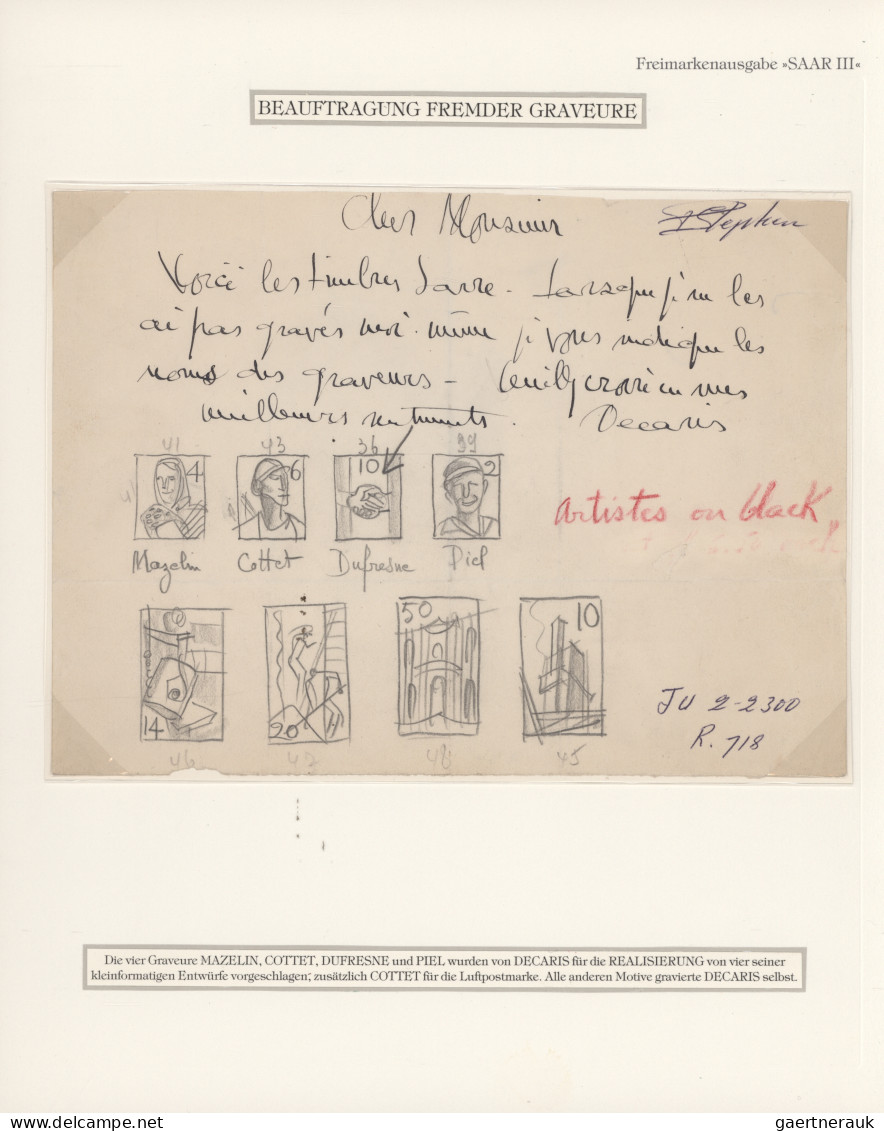 Freimarkenausgabe »SAAR III«
BEAUFTRAGUNG FREMDER GRAVEURE
Cher Monsieur
Stephen
Voici les timbres Sarre - Lorsque je ne les
ai pas gravés moi-même je vous indique les
noms des graveurs - Veuillez croire en mes
meilleurs sentiments. Decaris
41 43 36 39
4 6 10 2
Mazelin Cottet Dufresne Piel
artistes on black
14 20 50 10
46 47 48 45
JU 2-2300
R. 718
Die vier Graveure MAZELIN, COTTET, DUFRESNE und PIEL wurden von DECARIS für die REALISIERUNG von vier seiner
kleinformatigen Entwürfe vorgeschlagen; zusätzlich COTTET für die Luftpostmarke. Alle anderen Motive gravierte DECARIS selbst.
gaertnerauk